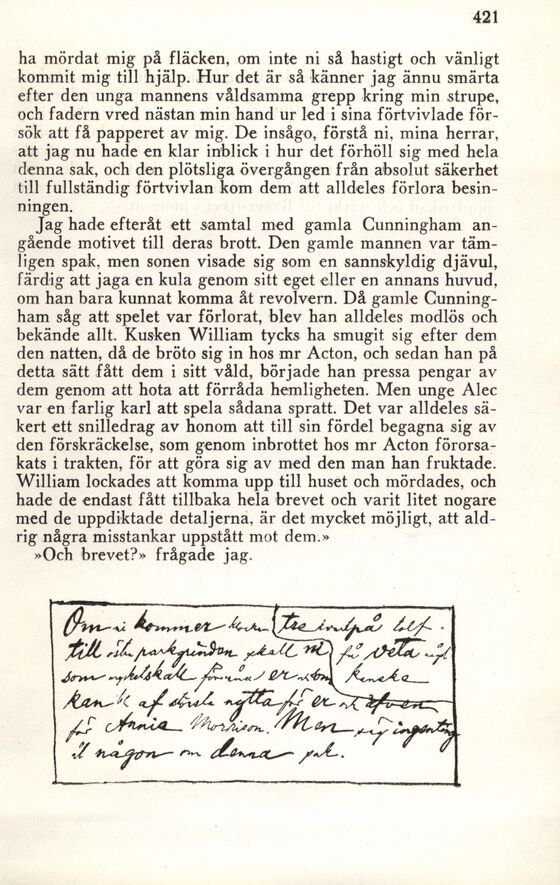 421
ha mördat mig på fläcken, om inte ni så hastigt och vänligt
kommit mig till hjälp. Hur det är så känner jag ännu smärta
efter den unga mannens våldsamma grepp kring min strupe,
och fadern vred nästan min hand ur led i sina förtvivlade för-
sök att få papperet av mig. De insågo, förstå ni, mina herrar,
att jag nu hade en klar inblick i hur det förhöll sig med hela
denna sak, och den plötsliga övergången från absolut säkerhet
till fullständig förtvivlan kom dem att alldeles förlora besin-
ningen.
Jag hade efteråt ett samtal med gamla Cunningham an-
gående motivet till deras brott. Den gamle mannen var täm-
ligen spak, men sonen visade sig som en sannskyldig djävul,
färdig att jaga en kula genom sitt eget eller en annans huvud,
om han bara kunnat komma åt revolvern. Då gamle Cunning-
ham såg att spelet var förlorat, blev han alldeles modlös och
bekände allt. Kusken William tycks ha smugit sig efter dem
den natten, då de bröto sig in hos mr Acton, och sedan han på
detta sätt fått dem i sitt våld, började han pressa pengar av
dem genom att hota att förråda hemligheten. Men unge Alec
var en farlig karl att spela sådana spratt. Det var alldeles sä-
kert ett snilledrag av honom att till sin fördel begagna sig av
den förskräckelse, som genom inbrottet hos mr Acton förorsa-
kats i trakten, för att göra sig av med den man han fruktade.
William lockades att komma upp till huset och mördades, och
hade de endast fått tillbaka hela brevet och varit litet nogare
med de uppdiktade detaljerna, är det mycket möjligt, att ald-
rig några misstankar uppstått mot dem.»
»Och brevet?» frågade jag.
Om ni kommer klockan tre kvart på tolf
till östra parkgrinden skall ni få veta något
som mycket skall förvåna er och som kanske
kan bli af största nytta för er och äfven
för Annie Morrison. Men säg ingenting
åt någon om denna sak.